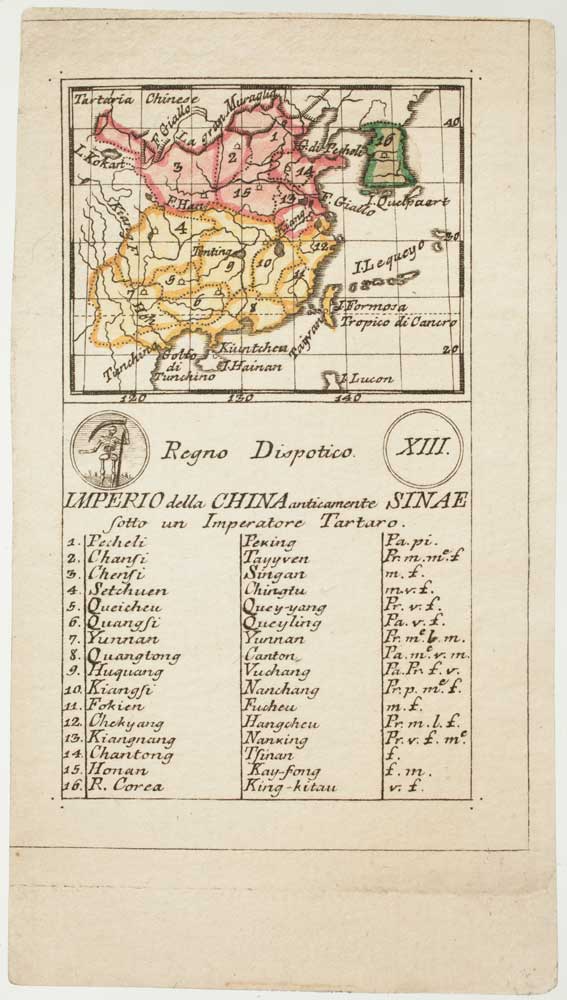 Tartaria Chinese
F. Giallo
La gran Muraglia
40
1
2
16
L. Kokart
G. di Pecheli
3
14
15
I. Quelpaert
F. Hen
13
F. Giallo
4
Kiang
30
Tonting
9
10
12
I. Lequeyo
11
7
5
6
8
I. Formosa
Tropico di Cancro
Tayvan
Tunching
Golfo
di
Tunchino
Kuintcheu
I. Hainan
20
I. Lucon
120
130
140
Regno Dispotico.
XIII.
IMPERIO della CHINA anticamente SINAE
sotto un Imperatore Tartaro.
1. Pecheli Peking Pa. pi.
2. Chansi Tayyven Pr. m. mᵉ. f
3. Chensi Singan m. f.
4. Setchuen Chingtu m. v. f.
5. Queicheu Quey-yang Pr. v. f.
6. Quangsi Queyling Pa. v. f.
7. Yunnan Yunnan Pr. mᵉ. b. m.
8. Quangtong Canton Pa. mᵉ. v. m.
9. Huquang Vuchang Pa. Pr. f. v.
10. Kiangsi Nanchang Pr. p. mᵉ. f.
11. Fokien Fucheu m. f.
12. Chekyang Hangcheu Pr. m. l. f.
13. Kiangnang Nanking Pr. v. f. mᵉ
14. Chantong Tsinan f.
15. Honan Kay-fong f. m.
16. R. Corea King-kitau v. f.